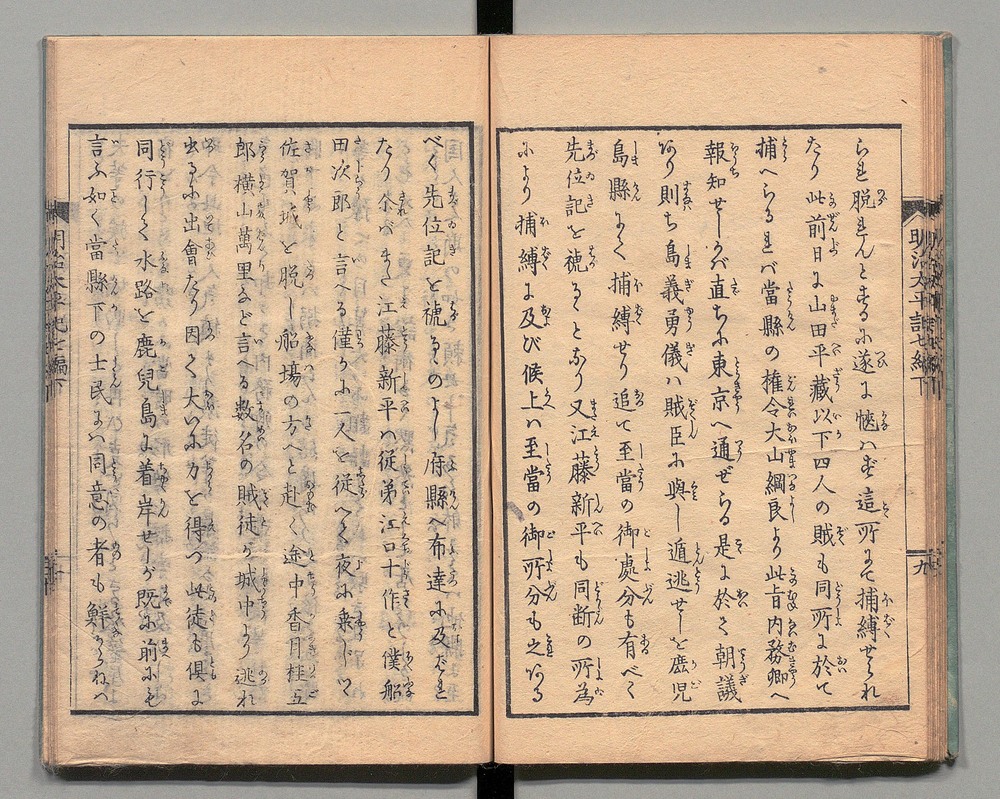 られ脱れんとするに遂に愜はず這所にて捕縛せられ
たり此前日に山田平藏以下四人の賊も同所に於て
捕へらるれバ當縣の権令大山綱良より此旨内務卿へ
報知せしかバ直ちに東京へ通ぜらる是に於て朝議
あり則ち島義勇儀ハ賊臣に與し遁逃せしを鹿児
島縣にて捕縛せり追て至當の御處分も有べく
先位記を褫るゝとなり又江藤新平も同断の所為
により捕縛に及び候上ハ至當の御所分も之ある
べく先位記を褫るゝのよし府縣へ布達に及ばれ
たり余バまた江藤新平ハ従弟江口十作と僕船
田次郎と言へる僅かに一人を従へて夜に乗じつゝ
佐賀城を脱し船場の方へと赴く途中香月桂五
郎横山萬里など言へる数名の賊徒が城中より逃れ
出るに出會たり因て大いに力を得つ此徒も倶に
同行して水路を鹿兒島に着岸せしが既に前にも
言ふ如く當縣下の士民にハ同意の者も鮮からねバ
明治太平記七編下
九